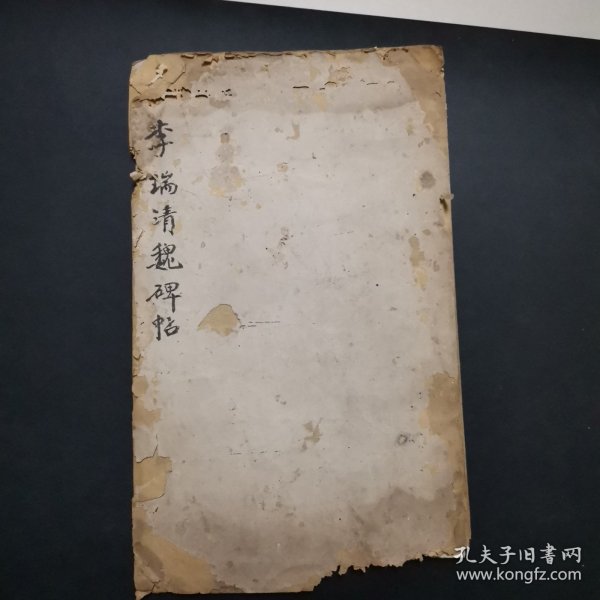 李瑞清魏碑帖
孔夫子旧書网
www.kongfz.com